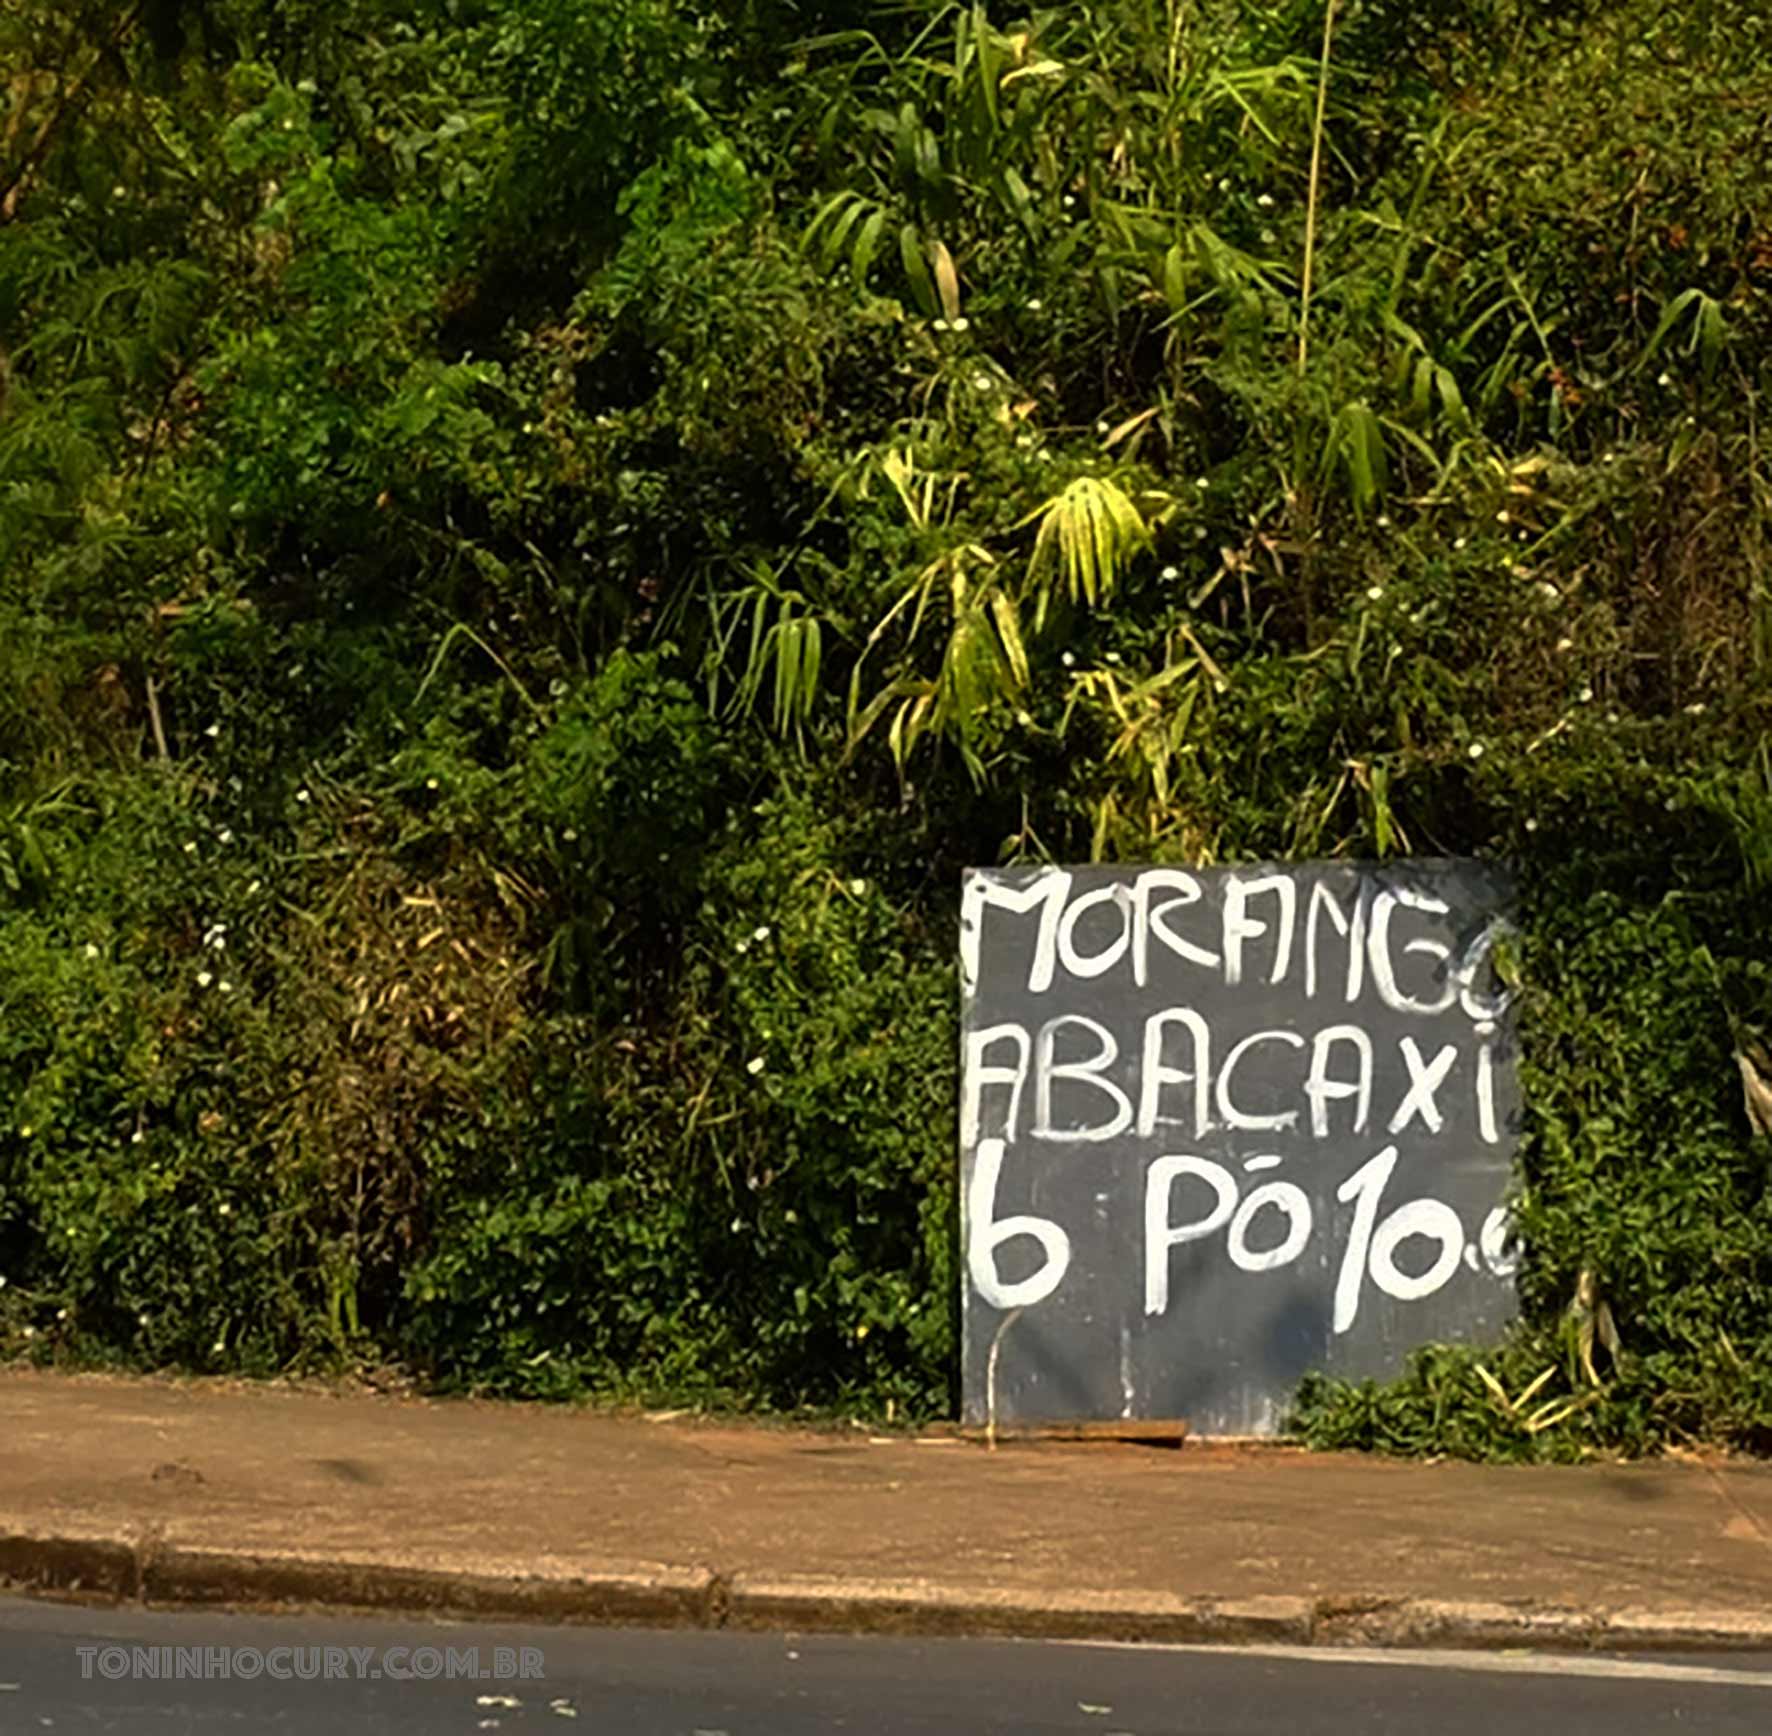 MORANGO
ABACAXi
6 PŌ 10,0
TONINHOCURY.COM.BR